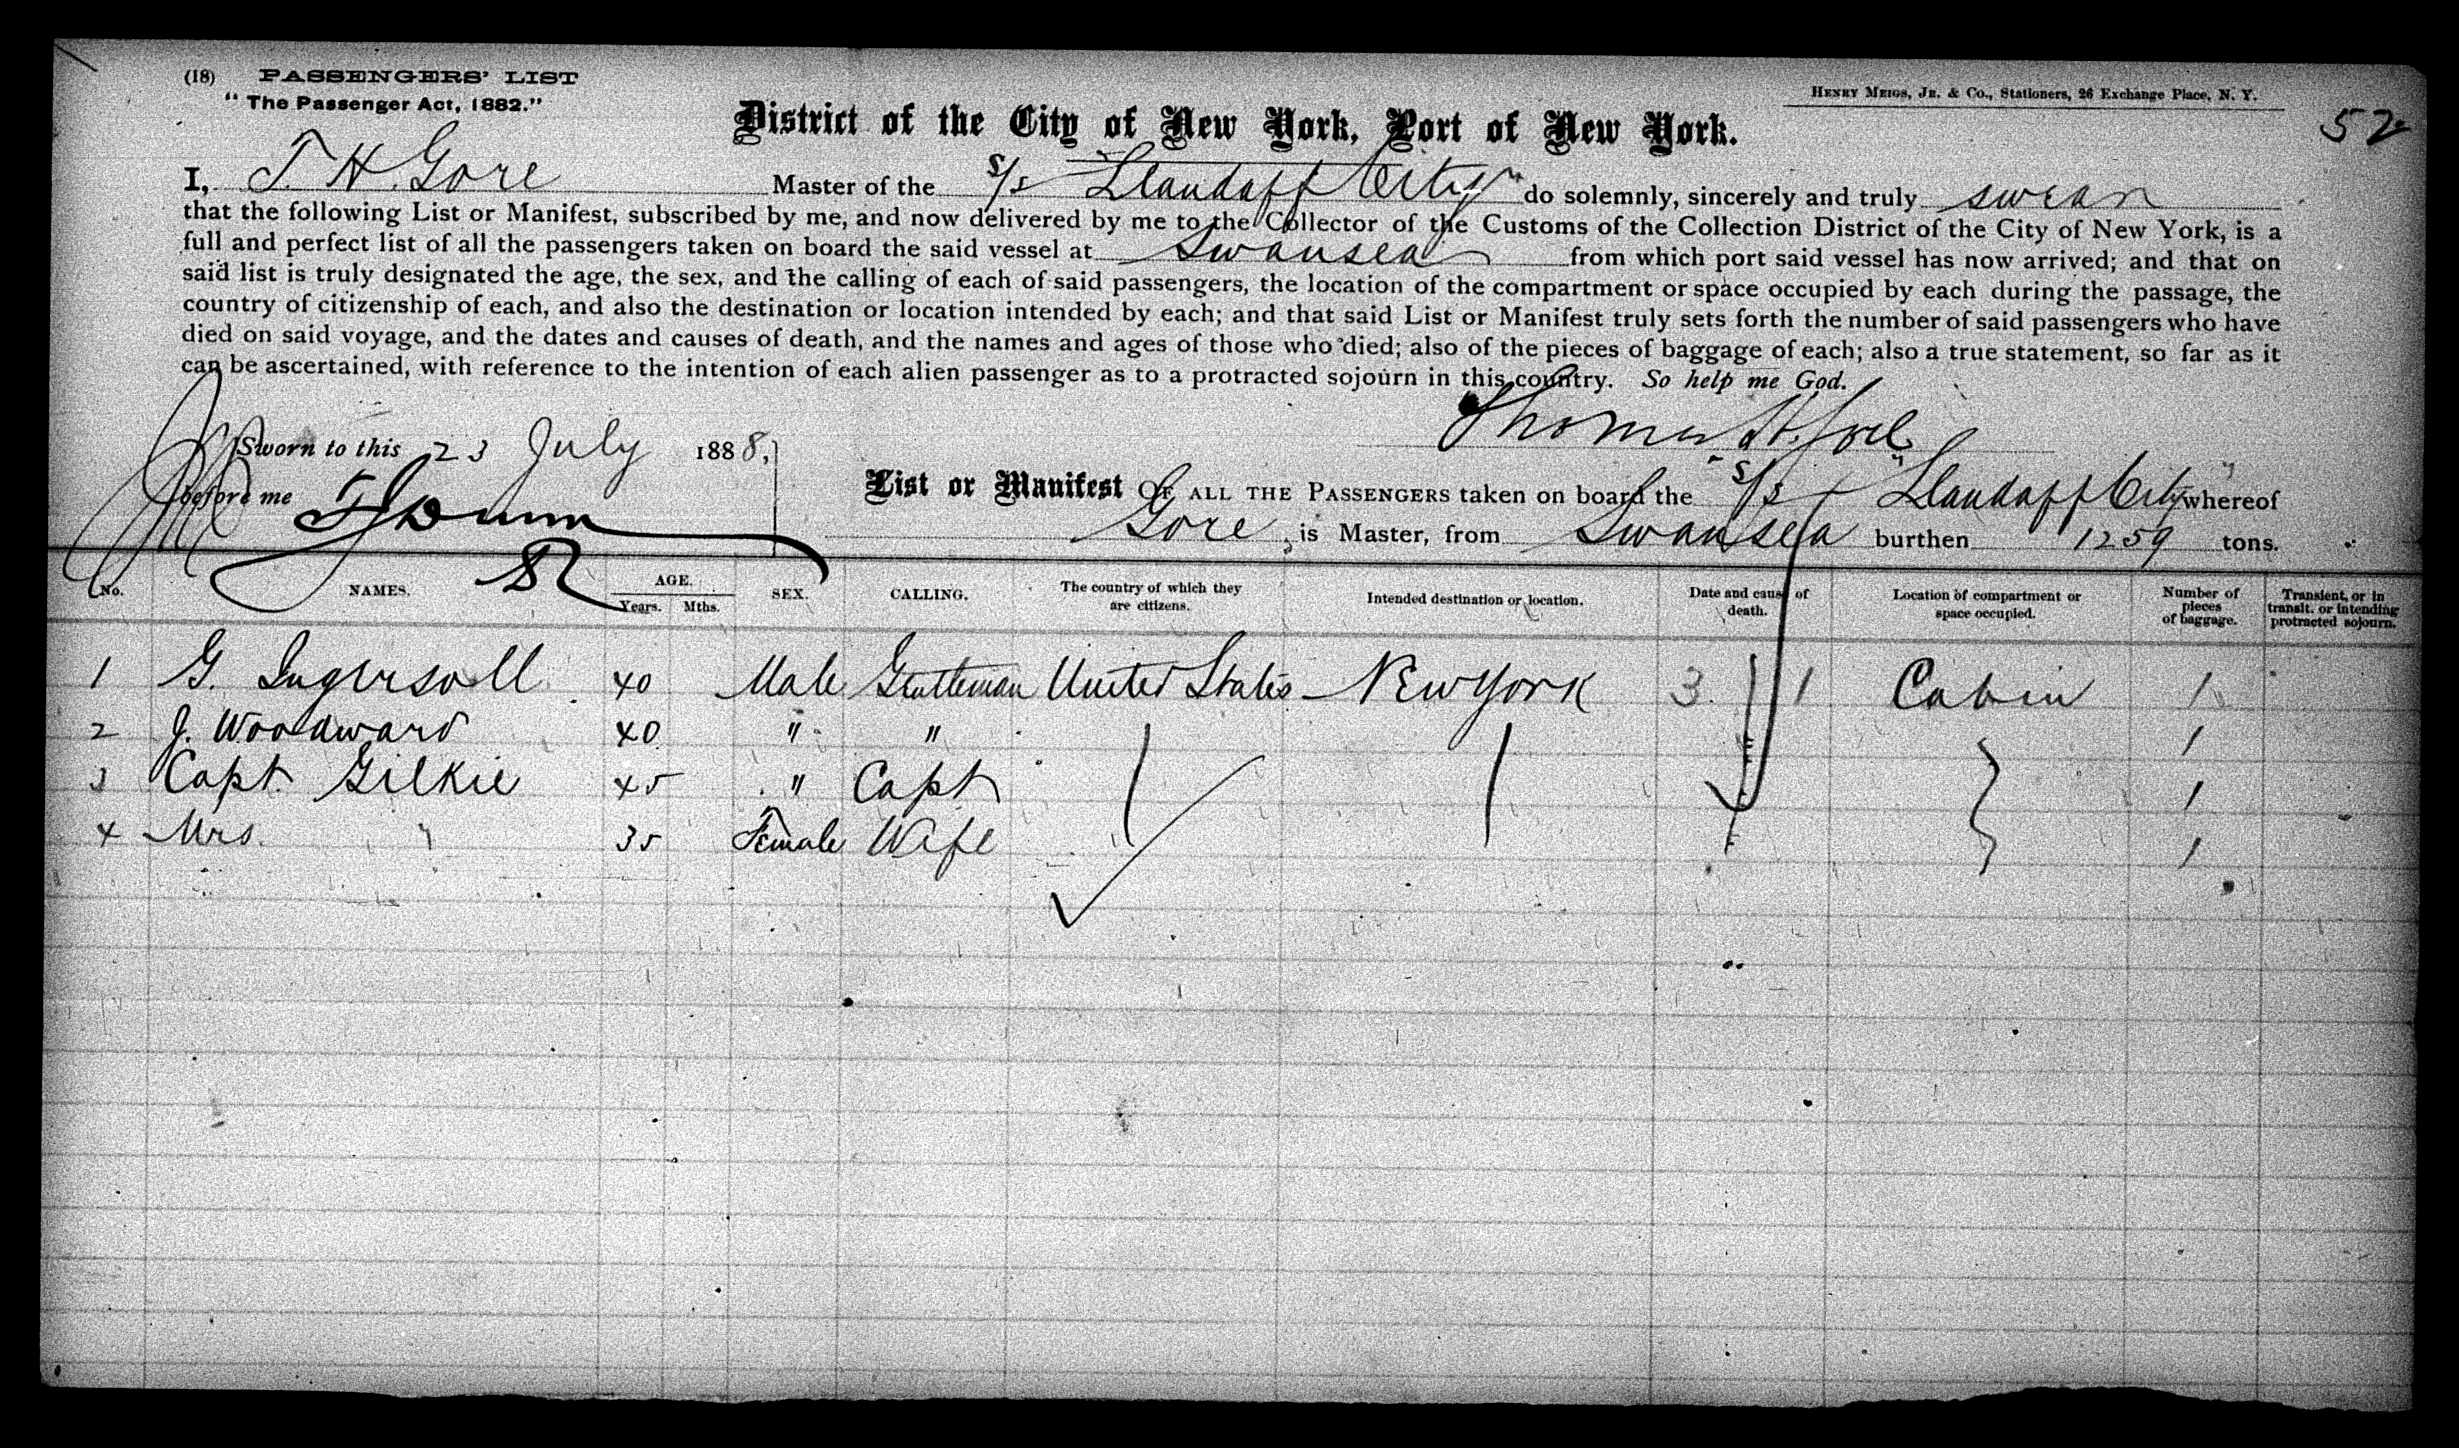 (18) PASSENGERS' LIST
" The Passenger Act, 1882."
HENRY MEIGS, JR. & CO., Stationers, 26 Exchange Place, N. Y.
52
District of the City of New York, Port of New York.
I, T. H. Gore Master of the S/s Llandaff City do solemnly, sincerely and truly swear
that the following List or Manifest, subscribed by me, and now delivered by me to the Collector of the Customs of the Collection District of the City of New York, is a
full and perfect list of all the passengers taken on board the said vessel at Swansea from which port said vessel has now arrived; and that on
said list is truly designated the age, the sex, and the calling of each of said passengers, the location of the compartment or space occupied by each during the passage, the
country of citizenship of each, and also the destination or location intended by each; and that said List or Manifest truly sets forth the number of said passengers who have
died on said voyage, and the dates and causes of death, and the names and ages of those who died; also of the pieces of baggage of each; also a true statement, so far as it
can be ascertained, with reference to the intention of each alien passenger as to a protracted sojourn in this country. So help me God.
Thomas H. Gore
Sworn to this 23 July 1888,
before me
List or Manifest OF ALL THE PASSENGERS taken on board the S/s Llandaff City whereof
Gore, is Master, from Swansea burthen 1259 tons.
No. NAMES. AGE. Years. Mths. SEX. CALLING. The country of which they are citizens. Intended destination or location. Date and cause of death. Location of compartment or space occupied. Number of pieces of baggage. Transient, or in transit, or intending protracted sojourn.
1 G. Ingersoll 40 Male Gentleman United States New York 3 1 Cabin 1
2 J. Woodward 40 " " 1
3 Capt. Gilkie 45 " Capt 1
4 Mrs. " 35 Female Wife 1